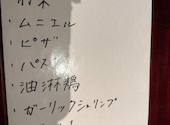 ・ムニエル
・ピザ
・パスタ
・油淋鶏
・ガーリックシュリンプ